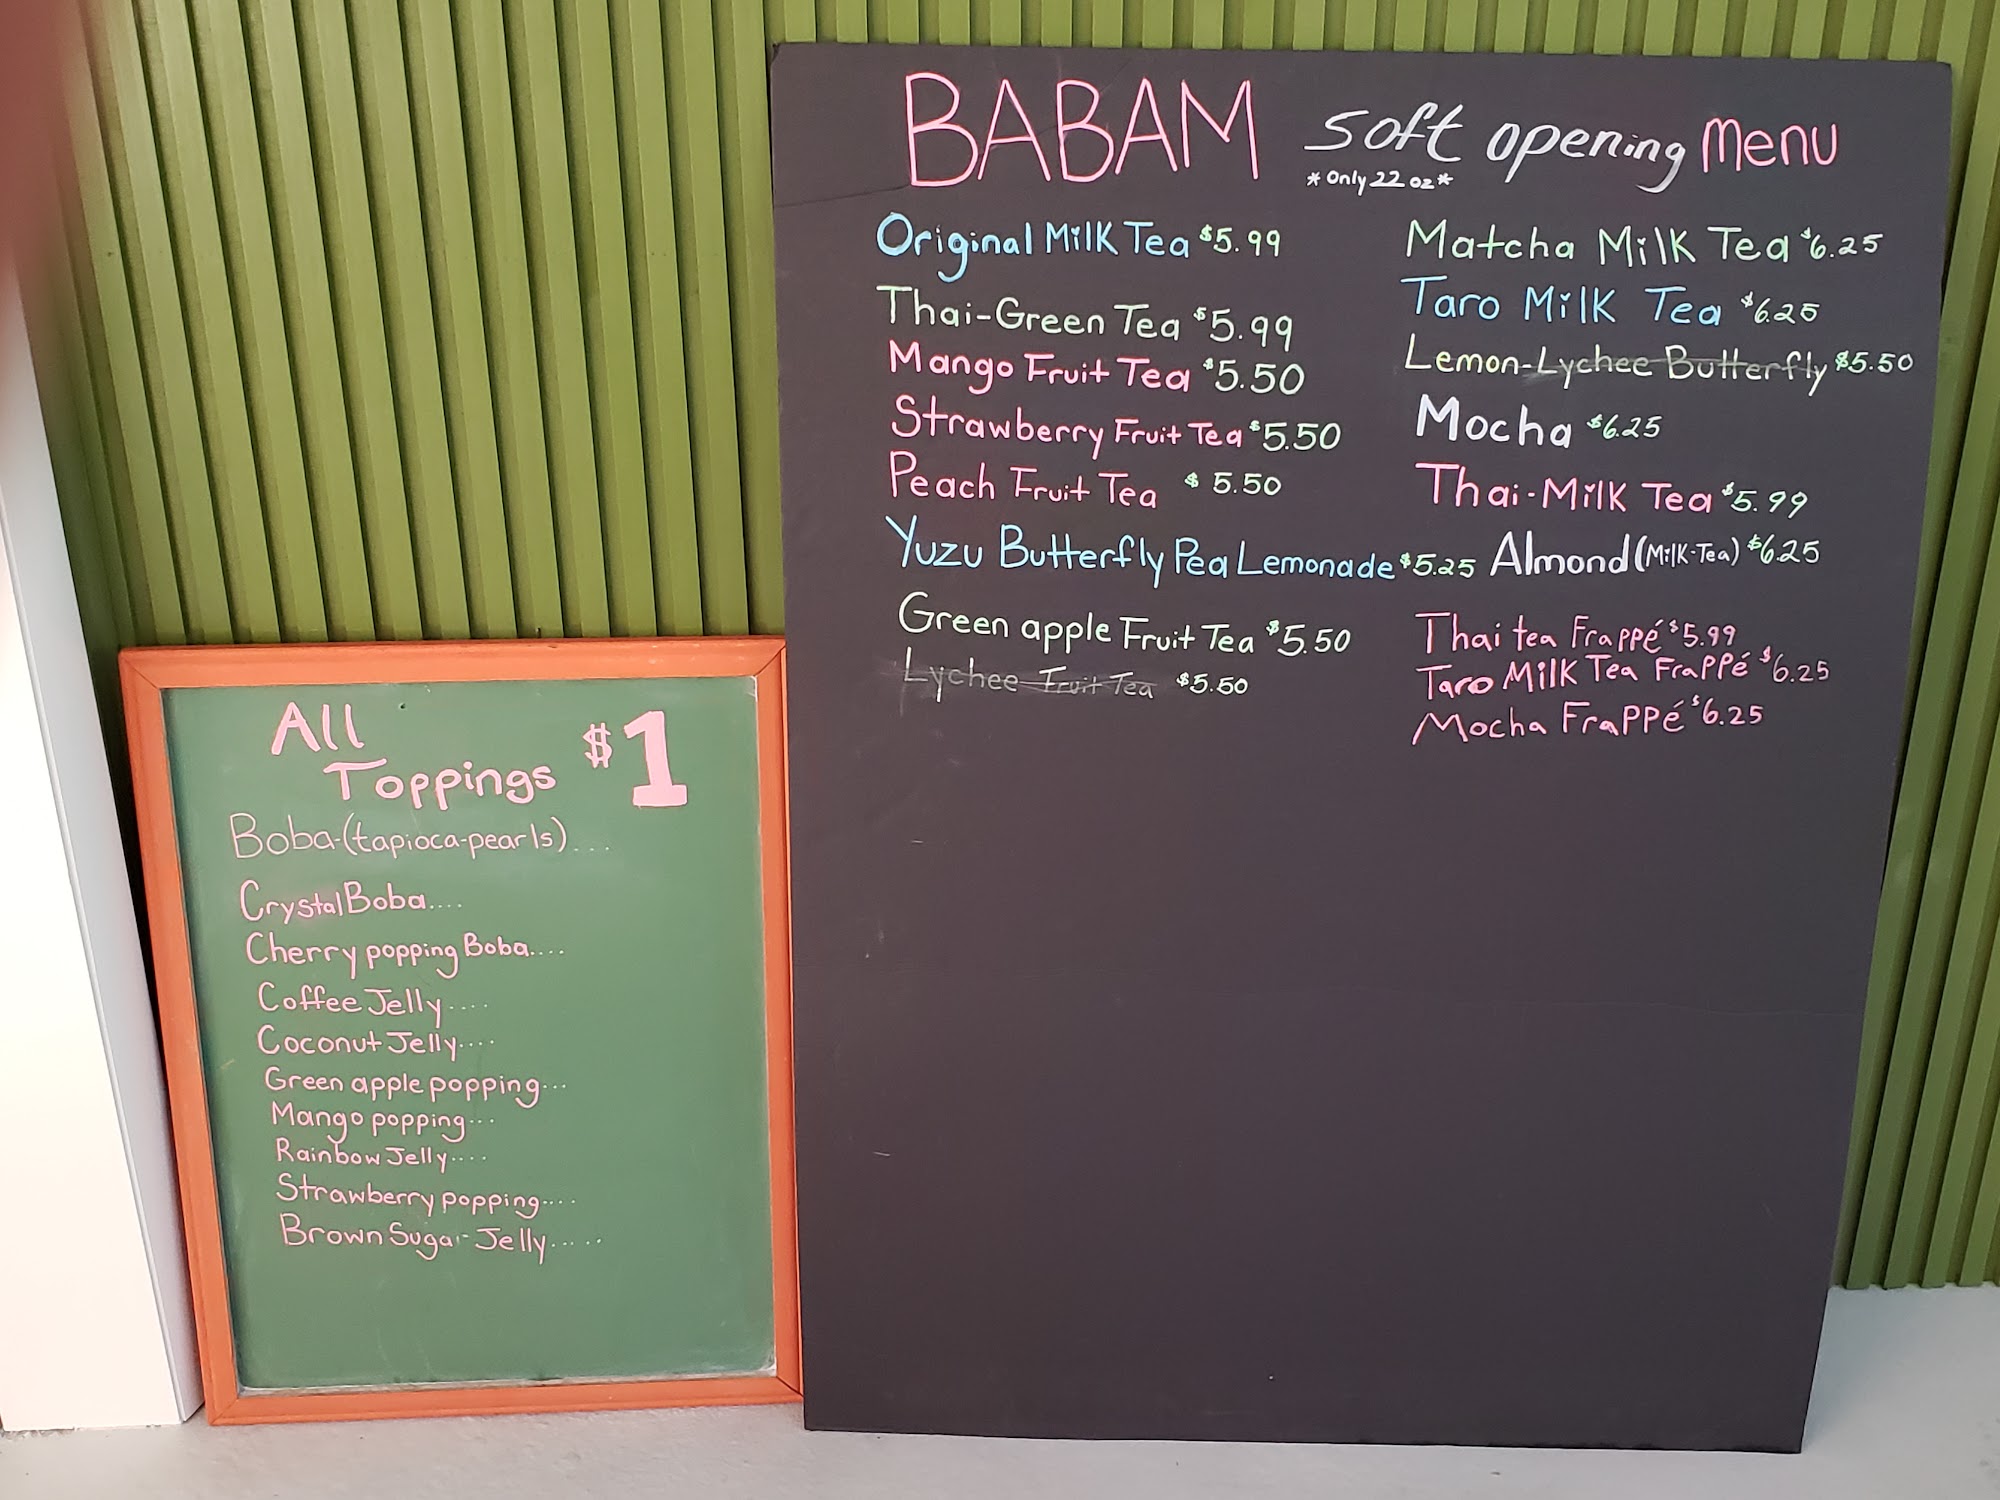 BABAM Soft opening Menu
*Only 22 oz*
Original Milk Tea $5.99
Thai-Green Tea $5.99
Mango Fruit Tea $5.50
Strawberry Fruit Tea $5.50
Peach Fruit Tea $5.50
Yuzu Butterfly Pea Lemonade $5.25
Green apple Fruit Tea $5.50
Lychee Fruit Tea $5.50
Matcha Milk Tea $6.25
Taro Milk Tea $6.25
Lemon-Lychee Butterfly $5.50
Mocha $6.25
Thai-Milk Tea $5.99
Almond (Milk-Tea) $6.25
Thai tea Frappé $5.99
Taro Milk Tea Frappé $6.25
Mocha Frappé $6.25
All
Toppings $1
Boba-(tapioca-pearls)....
Crystal Boba....
Cherry popping Boba....
Coffee Jelly....
Coconut Jelly....
Green apple popping...
Mango popping...
Rainbow Jelly....
Strawberry popping....
Brown Sugar Jelly.....